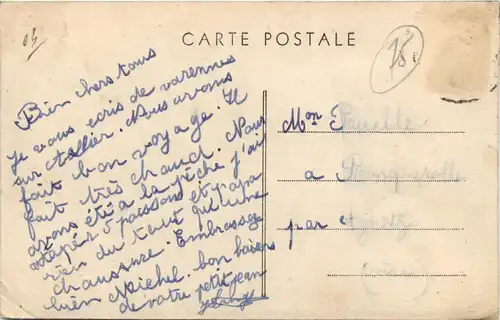 CARTE POSTALE
75
Bien chers tous
Je vous ecris de varennes
sur Allier. Nous avons
fait bon voyage. Il
fait très chaud. Nous
avons été a la pêche j'ai
attapér 5 poissons et papa
rien du tout qu'une
chaussure. Embrassez
bien Michel. bon baisers
de votre petit jean
Mon
a
par